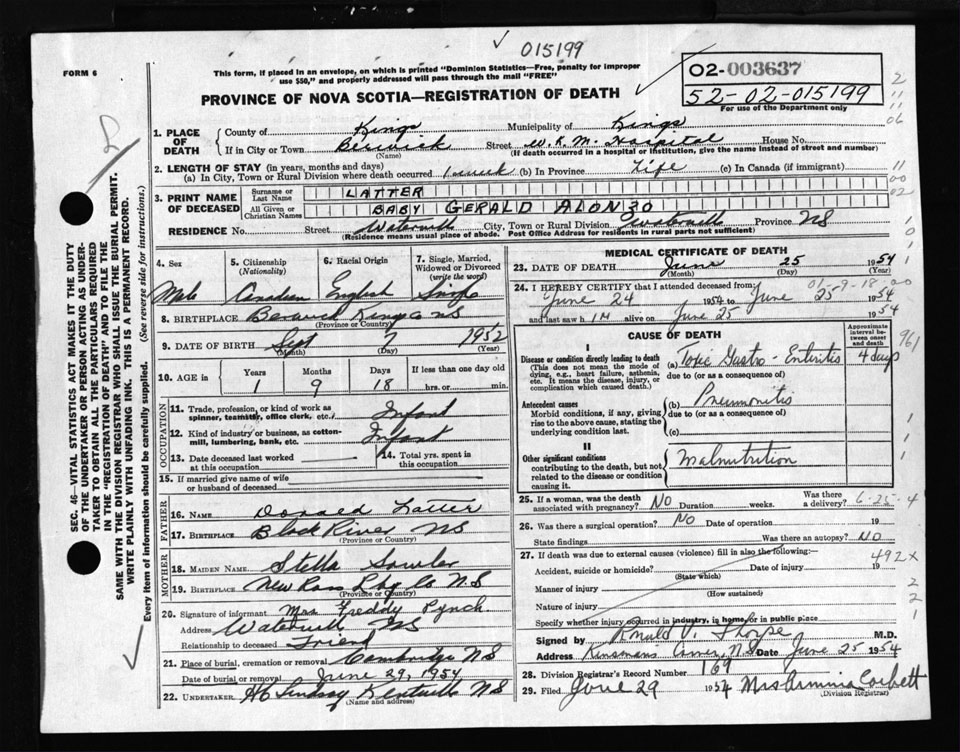 015199
FORM 6
This form, if placed in an envelope, on which is printed "Dominion Statistics—Free, penalty for improper
use $50," and properly addressed will pass through the mail "FREE"
02-003637
52-02-015199
For use of the Department only
PROVINCE OF NOVA SCOTIA—REGISTRATION OF DEATH
1. PLACE OF DEATH
County of Kings Municipality of Kings
If in City or Town Berwick Street W. K. M. Hospital House No.
(Name) (If death occurred in a hospital or institution, give the name instead of street and number)
2. LENGTH OF STAY (in years, months and days)
(a) In City, Town or Rural Division where death occurred 1 week (b) In Province Life (c) In Canada (if immigrant)
3. PRINT NAME OF DECEASED
Surname or Last Name LATTER
All Given or Christian Names BABY GERALD ALONZO
RESIDENCE No. Street Waterville City, Town or Rural Division Waterville Province NS
(Residence means usual place of abode. Post Office Address for residents in rural parts not sufficient)
4. Sex Male
5. Citizenship (Nationality) Canadian
6. Racial Origin English
7. Single, Married, Widowed or Divorced (write the word) Single
8. BIRTHPLACE Berwick Kings NS
(Province or Country)
9. DATE OF BIRTH Sept 7 1952
(Month) (Day) (Year)
10. AGE in Years Months Days If less than one day old
1 9 18 hrs. or min.
OCCUPATION
11. Trade, profession, or kind of work as spinner, teamster, office clerk, etc. Infant
12. Kind of industry or business, as cotton-mill, lumbering, bank, etc. Infant
13. Date deceased last worked at this occupation
14. Total yrs. spent in this occupation
15. If married give name of wife or husband of deceased
FATHER
16. NAME Donald Latter
17. BIRTHPLACE Black River NS
(Province or Country)
MOTHER
18. MAIDEN NAME Stella
19. BIRTHPLACE New Ross Lbg Co N.S
(Province or Country)
20. Signature of informant Mrs Freddy Pynch
Address Waterville NS
Relationship to deceased Friend
21. Place of burial, cremation or removal Cambridge NS
Date of burial or removal June 29, 1954
22. UNDERTAKER Lindsay Kentville NS
(Name and address)
MEDICAL CERTIFICATE OF DEATH
23. DATE OF DEATH June 25 1954
(Month) (Day) (Year)
24. I HEREBY CERTIFY that I attended deceased from:
01-9-18
June 24 1954 to June 25 1954
and last saw h im alive on June 25 1954
CAUSE OF DEATH
Approximate interval between onset and death
I
Disease or condition directly leading to death
(This does not mean the mode of dying, e.g., heart failure, asthenia, etc. It means the disease, injury, or complication which caused death.)
(a) Toxic Gastro-Enteritis 4 days
due to (or as a consequence of)
Antecedent causes
Morbid conditions, if any, giving rise to the above cause, stating the underlying condition last.
(b) Pneumonitis
due to (or as a consequence of)
(c)
II
Other significant conditions
contributing to the death, but not related to the disease or condition causing it.
Malnutrition
25. If a woman, was the death associated with pregnancy? NO Duration weeks. Was there a delivery? 6-25-4
26. Was there a surgical operation? NO Date of operation 19
State findings Was there an autopsy? NO
27. If death was due to external causes (violence) fill in also the following:—
492X
Accident, suicide or homicide? Date of injury 19
(State which)
Manner of injury
(How sustained)
Nature of injury
Specify whether injury occurred in industry, in home, or in public place
Signed by Ronald V. Thorpe M.D.
Address Kinsmans Corner, N.S Date June 25 1954
28. Division Registrar's Record Number 169
29. Filed June 29 1954 Mrs Arminia Corbett
(Division Registrar)
SEC. 46—VITAL STATISTICS ACT MAKES IT THE DUTY
OF THE UNDERTAKER OR PERSON ACTING AS UNDER-
TAKER TO OBTAIN ALL THE PARTICULARS REQUIRED
IN THE "REGISTRATION OF DEATH" AND TO FILE THE
SAME WITH THE DIVISION REGISTRAR WHO SHALL ISSUE THE BURIAL PERMIT.
WRITE PLAINLY WITH UNFADING INK. THIS IS A PERMANENT RECORD.
Every item of information should be carefully supplied. (See reverse side for instructions.)
2
11
11
06
11
00
02
961
2
2
1